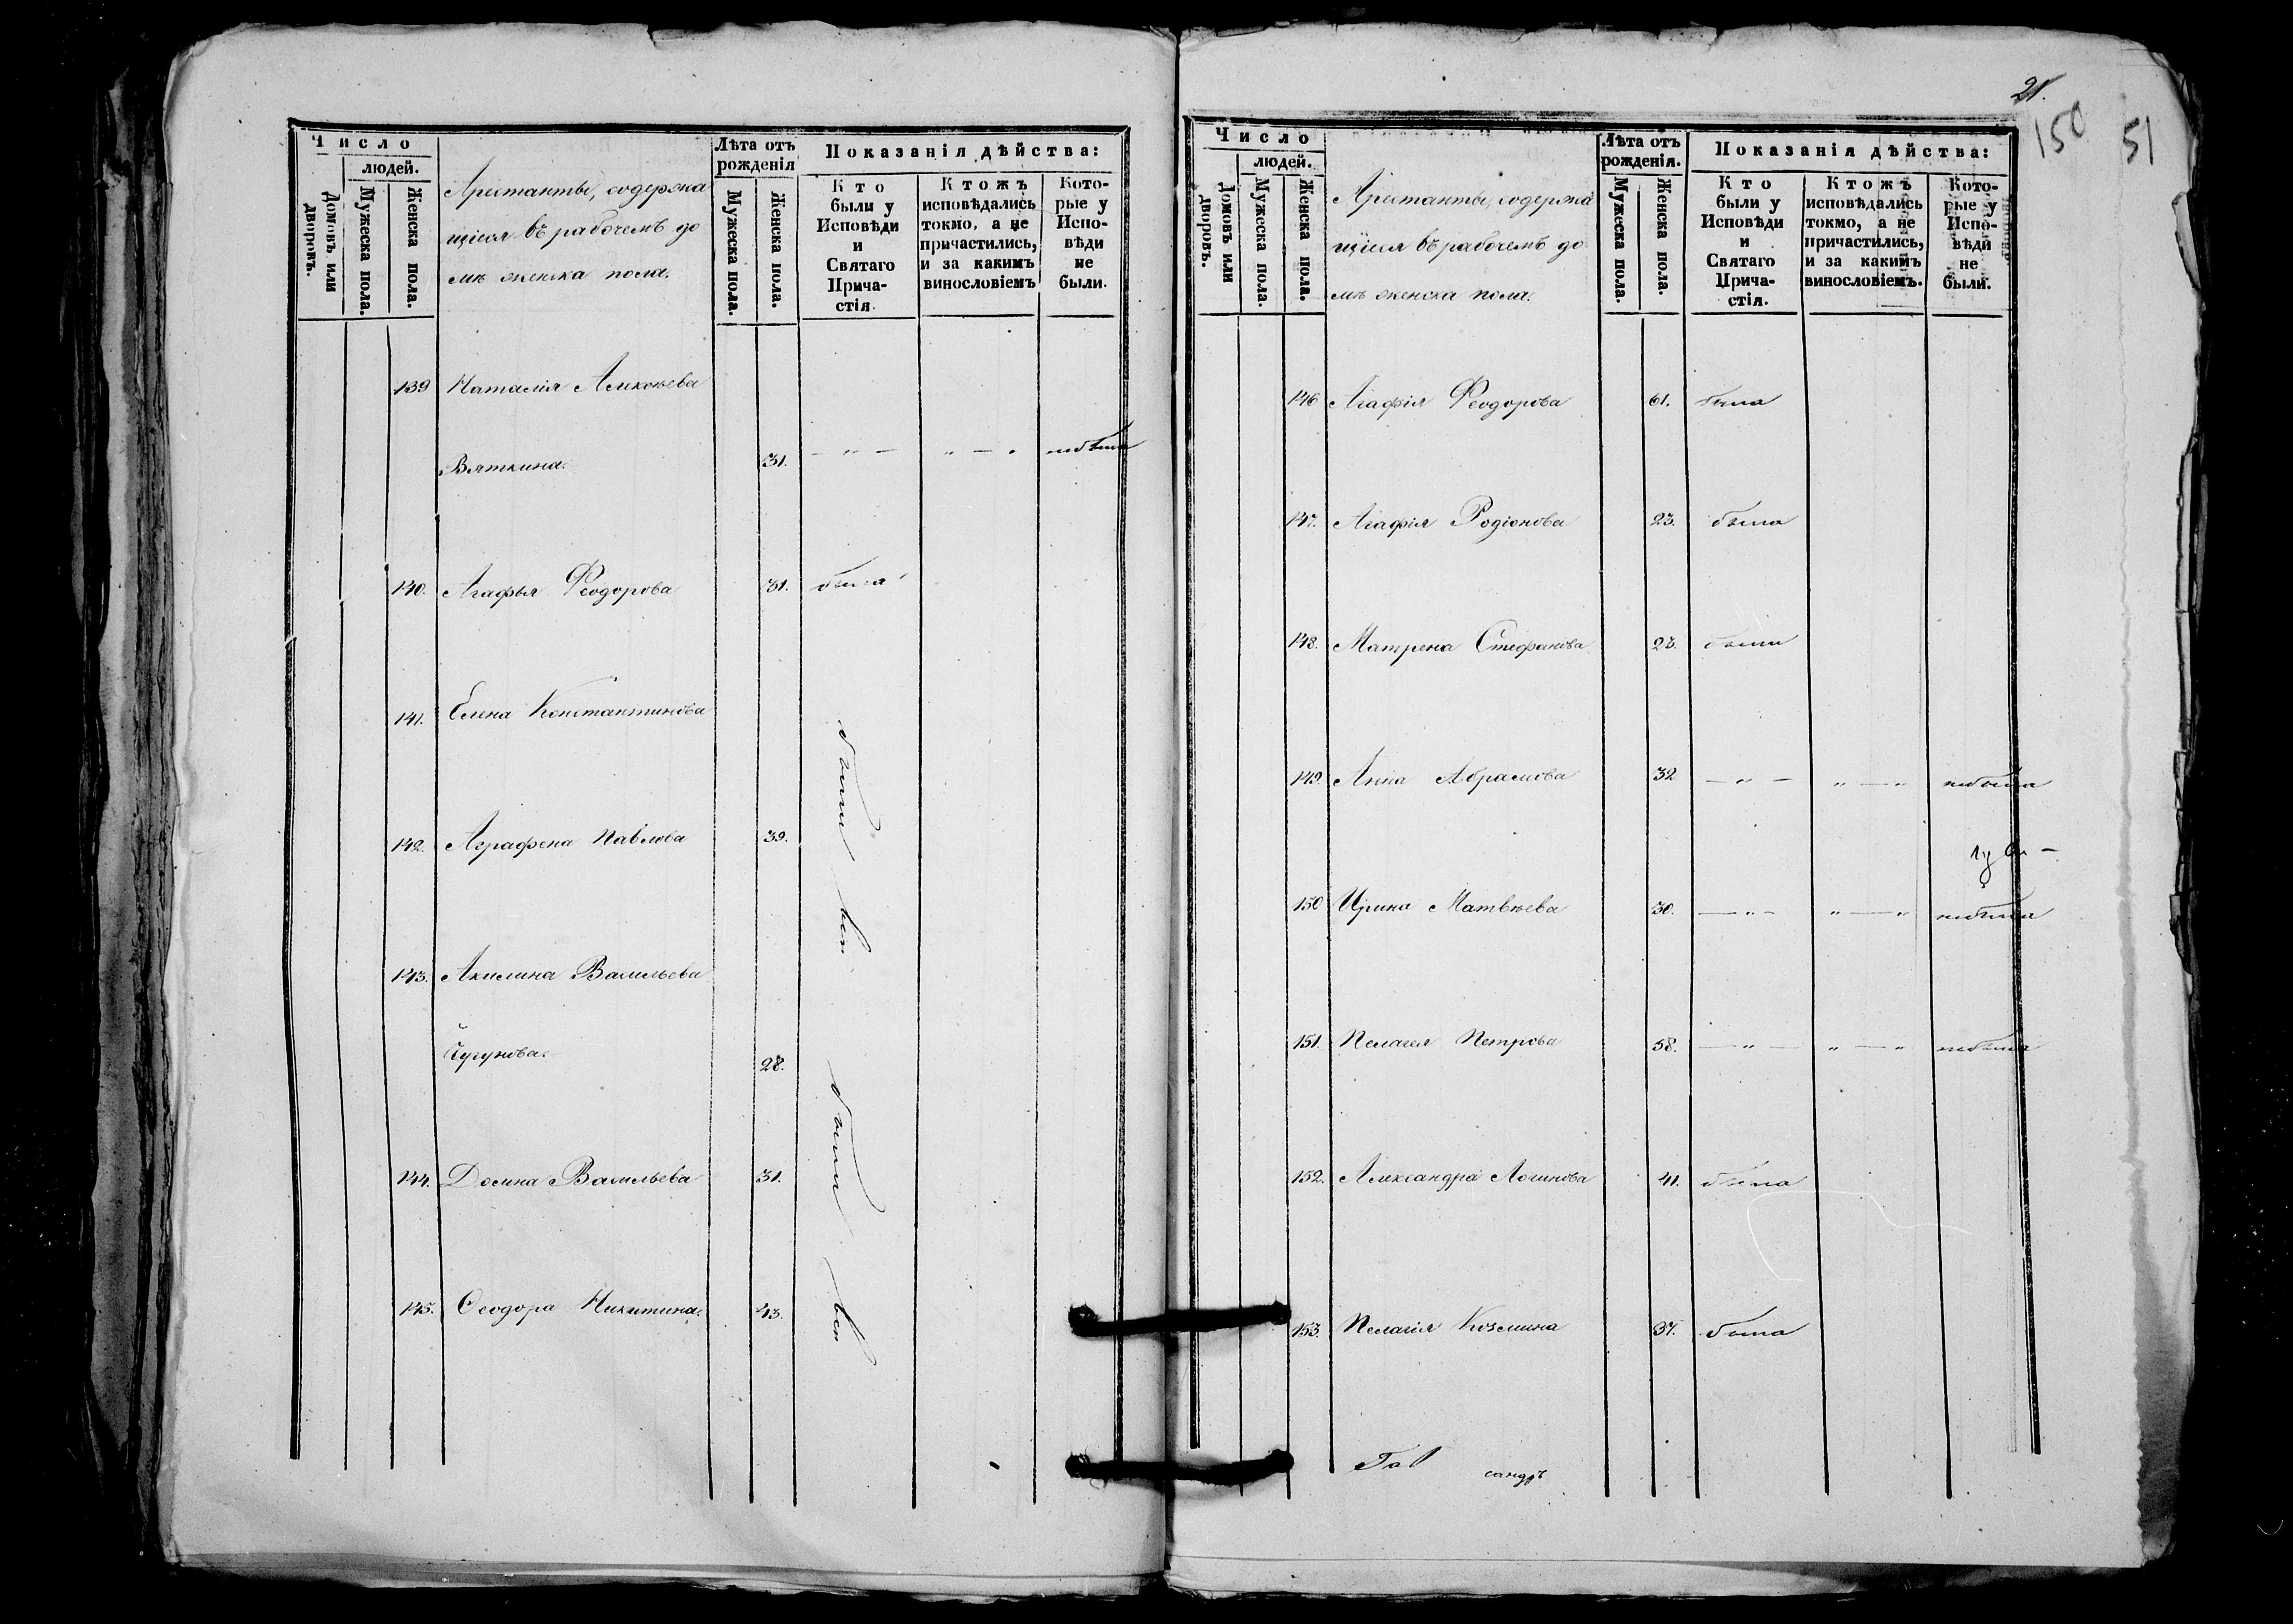 Число
людей.
Домовъ или дворовъ.
Мужеска пола.
Женска пола.
Арестанты, содержа
щіеся въ рабочемъ до
мѣ женска пола.
Лѣта отъ рожденія
Мужеска пола.
Женска пола.
Показанія дѣйства:
Кто были у Исповѣди и Святаго Причастія.
Ктожъ исповѣдались токмо, а не причастились, и за какимъ винословіемъ
Кото-рые у Испо-вѣди не были.
139 Наталія Алексѣева
Вяткина. 31. — „ — „ — „ небыла
140. Агафья Ѳеодорова 31. была
141. Елена Константинова
142. Аграфена Павлова 39.
были
143. Акилина Васильева
Чугунова. 28.
144. Домна Васильева 31.
были
145. Ѳеодора Никитина. 43.
21.
150 51
Число
людей.
Домовъ или дворовъ.
Мужеска пола.
Женска пола.
Арестанты, содержа
щіеся въ рабочемъ до
мѣ женска пола.
Лѣта отъ рожденія.
Мужеска пола.
Женска пола.
Показанія дѣйства:
Кто были у Исповѣди и Святаго Причастія.
Ктожъ исповѣдались токмо, а не причастились, и за какимъ винословіемъ.
Кото-рые у Испо-вѣди не были.
146 Агафія Ѳеодорова 61. была
147. Агафія Родіонова 23. была
148. Матрена Стефанова 23. была
149. Анна Абрамова 32 — „ — „ — „ небыла
150 Ирина Матвѣева 30. — „ — „ — „ небыла
151. Пелагея Петрова 58. — „ — „ — „ небыла
152. Александра Логинова 41. была
153. Пелагія Козмина 37. была
сандръ